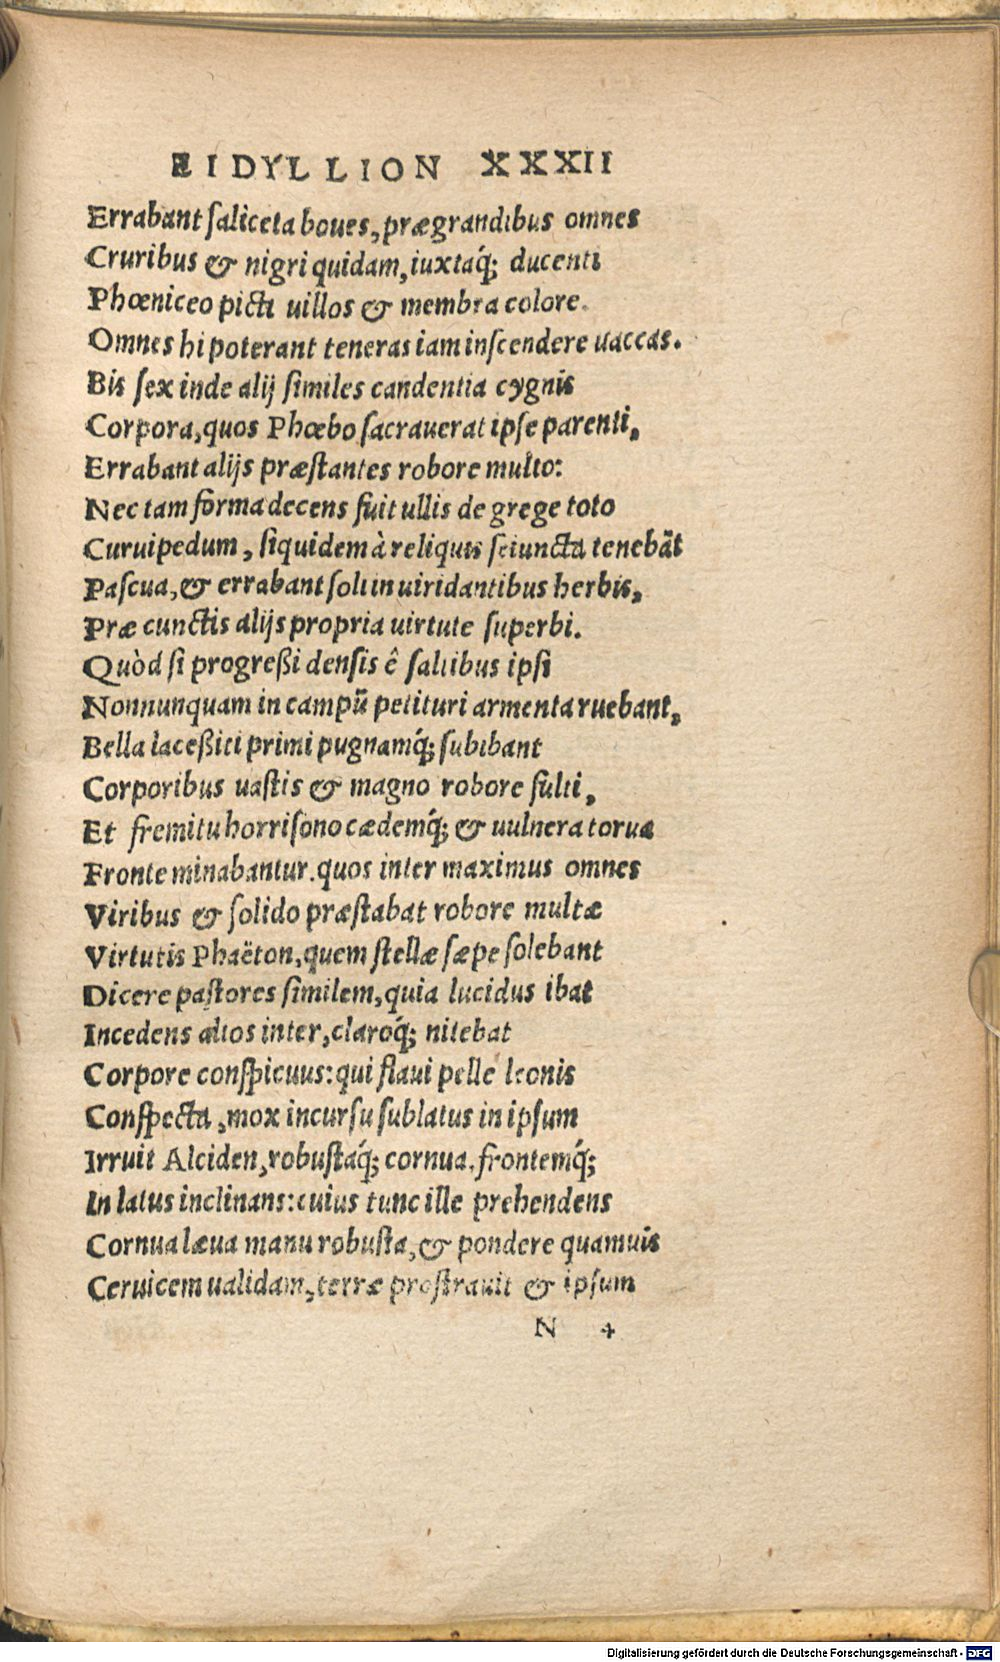 EIDYLLION XXXII
Errabant ſaliceta boues, prægrandibus omnes
Cruribus & nigri quidam, iuxtaq́; ducenti
Phœniceo picti uillos & membra colore.
Omnes hi poterant teneras iam inſcendere uaccas.
Bis ſex inde alij ſimiles candentia cygnis
Corpora, quos Phœbo ſacrauerat ipſe parenti,
Errabant alijs præſtantes robore multo:
Nec tam forma decens fuit ullis de grege toto
Curuipedum, ſiquidem à reliquis ſeiuncta tenebāt
Paſcua, & errabant ſoli in uiridantibus herbis,
Præ cunctis alijs propria uirtute ſuperbi.
Quòd ſi progreßi denſis ê ſaltibus ipſi
Nonnunquam in campū petituri armenta ruebant,
Bella laceßiti primi pugnamq́; ſubibant
Corporibus uaſtis & magno robore fulti,
Et fremitu horriſono cædemq́; & uulnera torua
Fronte minabantur. quos inter maximus omnes
Viribus & ſolido præſtabat robore multæ
Virtutis Phaëton, quem ſtellæ ſæpe ſolebant
Dicere paſtores ſimilem, quia lucidus ibat
Incedens alios inter, claroq́; nitebat
Corpore conſpicuus: qui flaui pelle leonis
Conſpecta, mox incurſu ſublatus in ipſum
Irruit Alciden, robuſtaq́; cornua, frontemq́;
In latus inclinans: cuius tunc ille prehendens
Cornua læua manu robuſta, & pondere quamuis
Ceruicem ualidam, terræ proſtrauit & ipſum
N 4
Digitalisierung gefördert durch die Deutsche Forschungsgemeinschaft - DFG